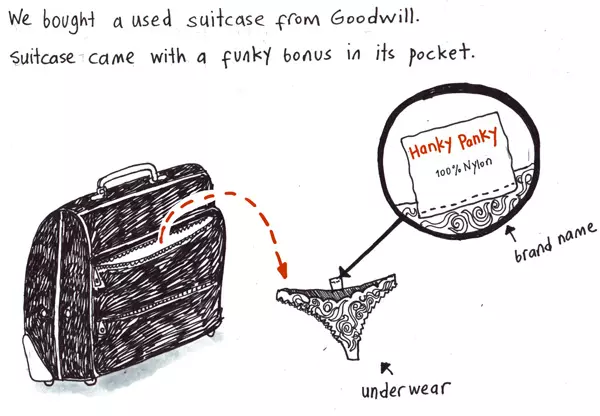 We bought a used suitcase from Goodwill.
Suitcase came with a funky bonus in its pocket.
Hanky Panky
100% Nylon
brand name
underwear